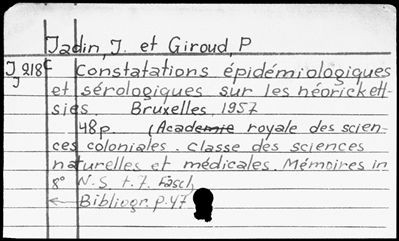 Jadin, J. et Giroud, P
J 218 C Constatations épidémiologiques
J et sérologiques sur les néorickett-
sies Bruxelles, 1957
48p. (Academie royale des scien-
ces coloniales. Classe des sciences
naturelles et médicales. Mémoires in
8° N.S. t.7. Fasc.
← Bibliogr. p.47